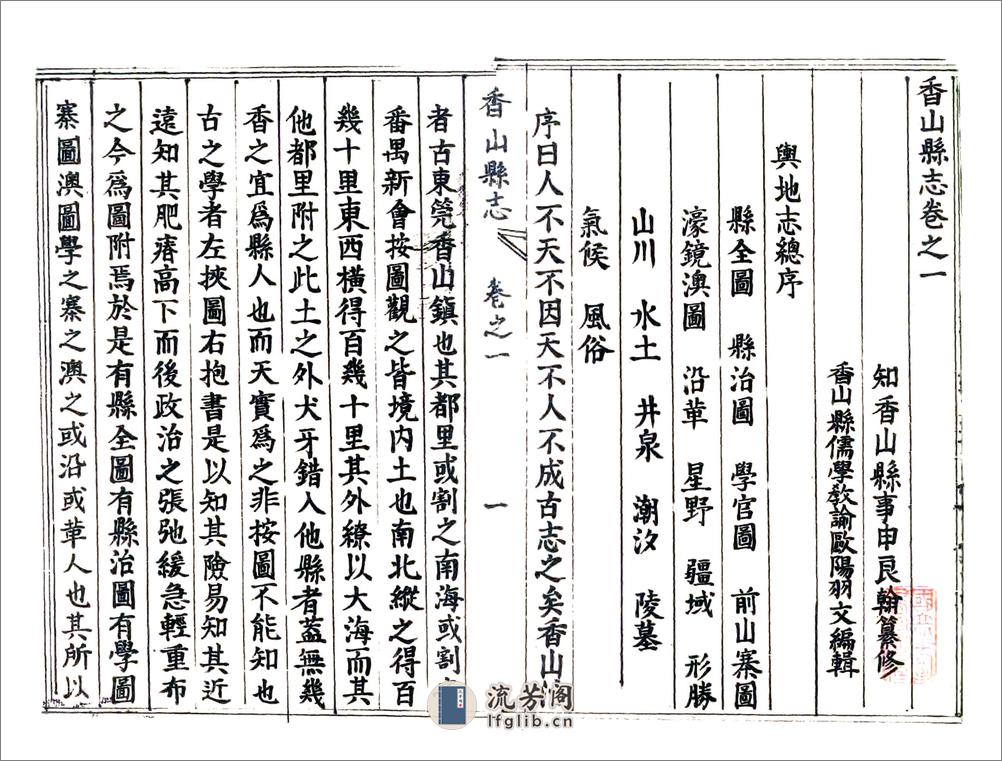 香山縣志卷之一
知香山縣事申良翰纂修
香山縣儒學敎諭歐陽羽文編輯
輿地志總序
縣全圖 縣治圖 學宫圖 前山寨圖
濠鏡澳圖 沿革 星野 疆域 形勝
山川 水土 井泉 潮汐 陵墓
氣候 風俗
序曰人不天不因天不人不成古志之矣香山
香山縣志 卷之一 一
者古東莞香山鎮也其都里或割之南海或割
番禺新會按圖觀之皆境内土也南北縱之得百
幾十里東西橫得百幾十里其外繚以大海而其
他都里附之此土之外犬牙錯入他縣者葢無幾
香之宜爲縣人也而天實爲之非按圖不能知也
古之學者左挾圖右抱書是以知其險易知其近
遠知其肥瘠高下而後政治之張弛緩急輕重布
之今爲圖附焉於是有縣全圖有縣治圖有學圖
寨圖澳圖學之寨之澳之或沿或革人也其所以
流芳阁
lfglib.cn